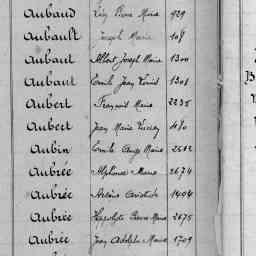 Aubaud Lég Pierre Marie 929
Aubault Joseph Marie 108
Aubaut Albert Joseph Marie 1300
Aubaut Emile Jean Louis 1301
Aubert François Marie 2235
Aubert Jean Marie 480
Aubin Emile Ange Marie 2512
Aubrée Alphonse Marie 2674
Aubrée Aristide 1404
Aubrée Hippolyte Pierre Marie 2675
Aubrée Jean Adolphe Marie 1709